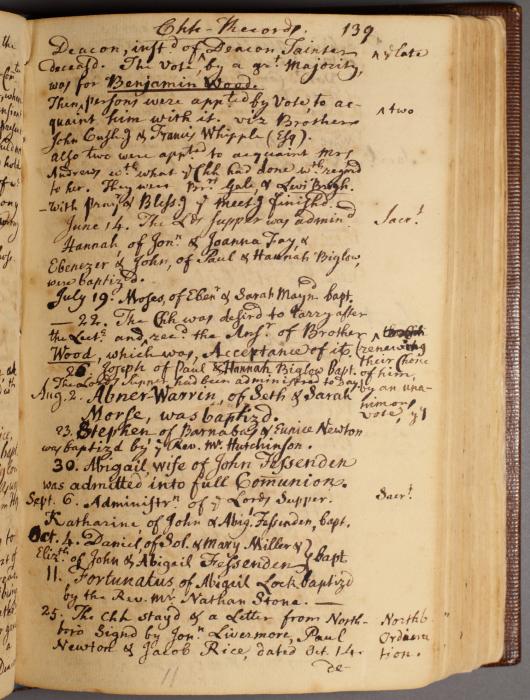 Chh-Records. 139
Deacon, inst'd of Deacon Tainter ^ ye late
deceas'd. The vote, by a gr.t Majority,
was for Benjamin Wood.
Then ^ persons were app.ted by Vote, to ac- ^ two
quaint him with it. viz Brothers
John Cush.g & Francis Whipple (Esq).
also two were app.td to acquaint Mrs
Andrews wth what ye Chh had done wth regard
to her. They were Br.rs Gale & Levi Brigh.
- With Pray.r & Bless.g ye meet.g finish'd
June 14. The Lds Supper was admin.d Sacr.t
Hannah of Jon.n & Joanna Fay, &
Ebenezer & John, of Paul & Hannah Biglow,
were baptiz'd.
July 19. Moses, of Eben.r & Sarah Mayn.d bapt.
— 22. The Chh was desir'd to tarry after
the Lect.e and rec.d the Ans.r of Brother
Wood, which was, Acceptance of it. (renewing
their Choice
of him,
by an una-
nimous
vote,
26. Joseph of Paul & Hannah Biglow bapt.
The Lord's Supper had been administred to Day
Aug. 2. Abner-Warrin, of Seth & Sarah
Morse, was baptiz'd.
23. Stephen of Barnabas & Eunice Newton
was baptiz'd by ye Rev. Mr. Hutchinson.
30. Abigail, wife of John Fessenden
was admitted into full Comunion.
Sept. 6. Administr.n of ye Lords Supper. Sacr.t
Katharine of John & Abig.l Fessenden, bapt.
Oct. 4. Daniel of Sol. & Mary Miller &
Eliz.th of John & Abigail Fessenden } bapt
11. Fortunatus of Abigail Lock baptiz'd
by the Rev. Mr. Nathan Stone. —
25. The Chh stay'd & a Letter from North- Northb.o
boro Sign'd by Jon.n Livermore, Paul Ordina
Newton & Jacob Rice, dated Oct. 14. tion.
de-